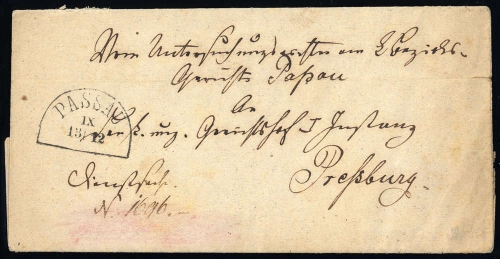 Vom Untersuchungsrichter am k. Bezirks-
Gerichte Passau
An
PASSAU
IX
13/12
k. ung. Gerichtshof I Instanz
Preßburg.
Dienstsache
N. 1696.